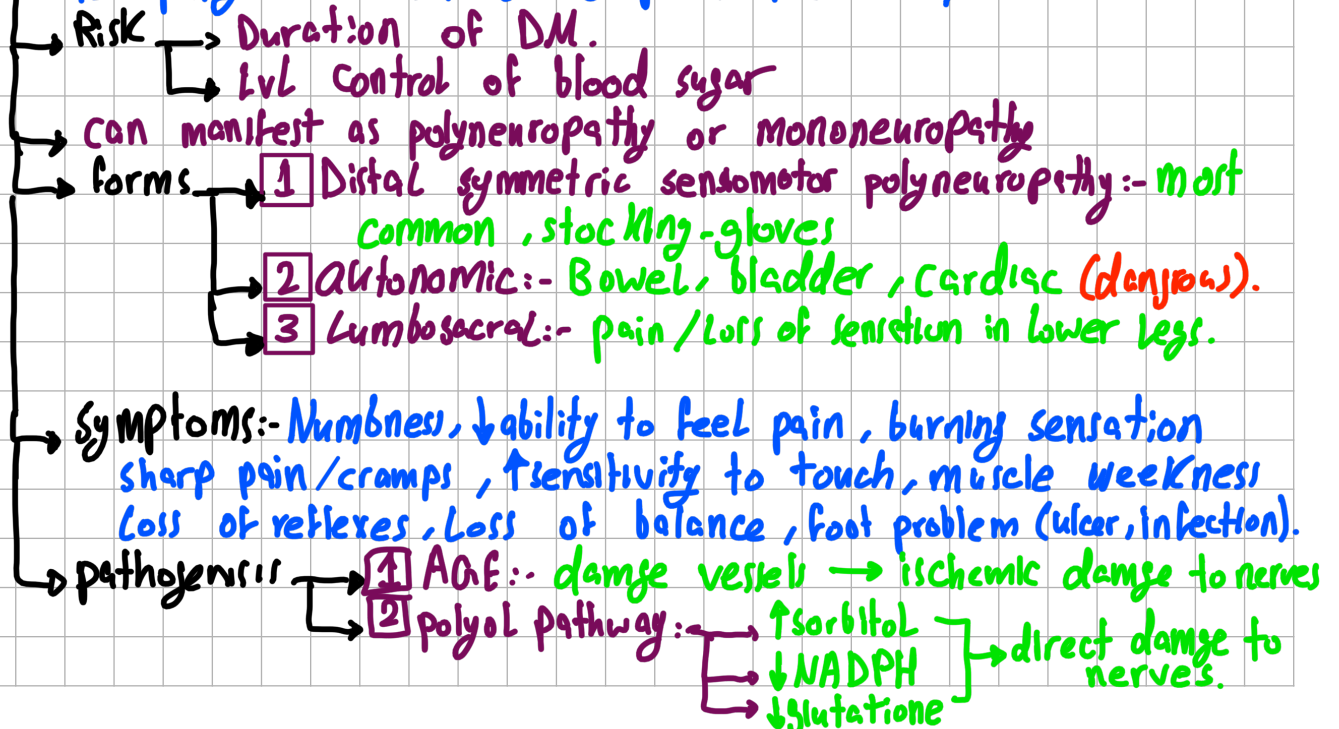 Risk → Duration of DM.
→ Lvl control of blood sugar
→ can manifest as polyneuropathy or mononeuropathy
→ forms → 1 Distal symmetric sensomotor polyneuropathy:- most
common, stocking-gloves
→ 2 autonomic:- Bowel, bladder, cardiac (dangrous).
→ 3 Lumbosacral:- pain/Loss of sensetion in lower legs.
→ symptoms:- Numbness, ↓ability to feel pain, burning sensation
sharp pain/cramps, ↑sensitivity to touch, muscle weekness
Loss of reflexes, Loss of balance, foot problem (ulcer, infection).
→ pathogensis → 1 AGE:- damge vessels → ischemic damge to nerves
→ 2 polyol pathway:- → ↑sorbitol
→ direct damge to
→ ↓NADPH
nerves.
→ ↓glutatione